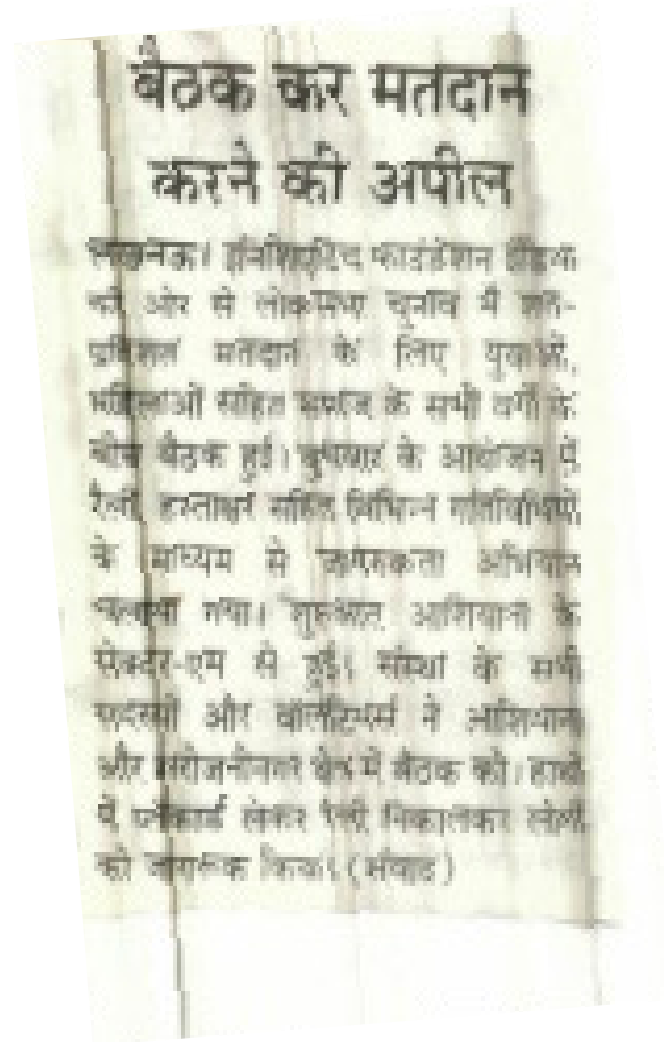 बैठक कर मतदान
करने की अपील
लखनऊ। इनिशिएटिव फाउंडेशन इंडिया
की ओर से लोकसभा चुनाव में शत-
प्रतिशत मतदान के लिए युवाओं,
महिलाओं सहित समाज के सभी वर्गों के
बीच बैठक हुई। बुधवार के आयोजन में
रैली, हस्ताक्षर सहित विभिन्न गतिविधियों
के माध्यम से जागरुकता अभियान
चलाया गया। शुरुआत आशियाना के
सेक्टर-एम से हुई। संस्था के सभी
सदस्यों और वॉलंटियर्स ने आशियाना
और सरोजनीनगर क्षेत्र में बैठक की। हाथों
में प्लेकार्ड लेकर रैली निकालकर लोगों
को जागरूक किया। (संवाद)